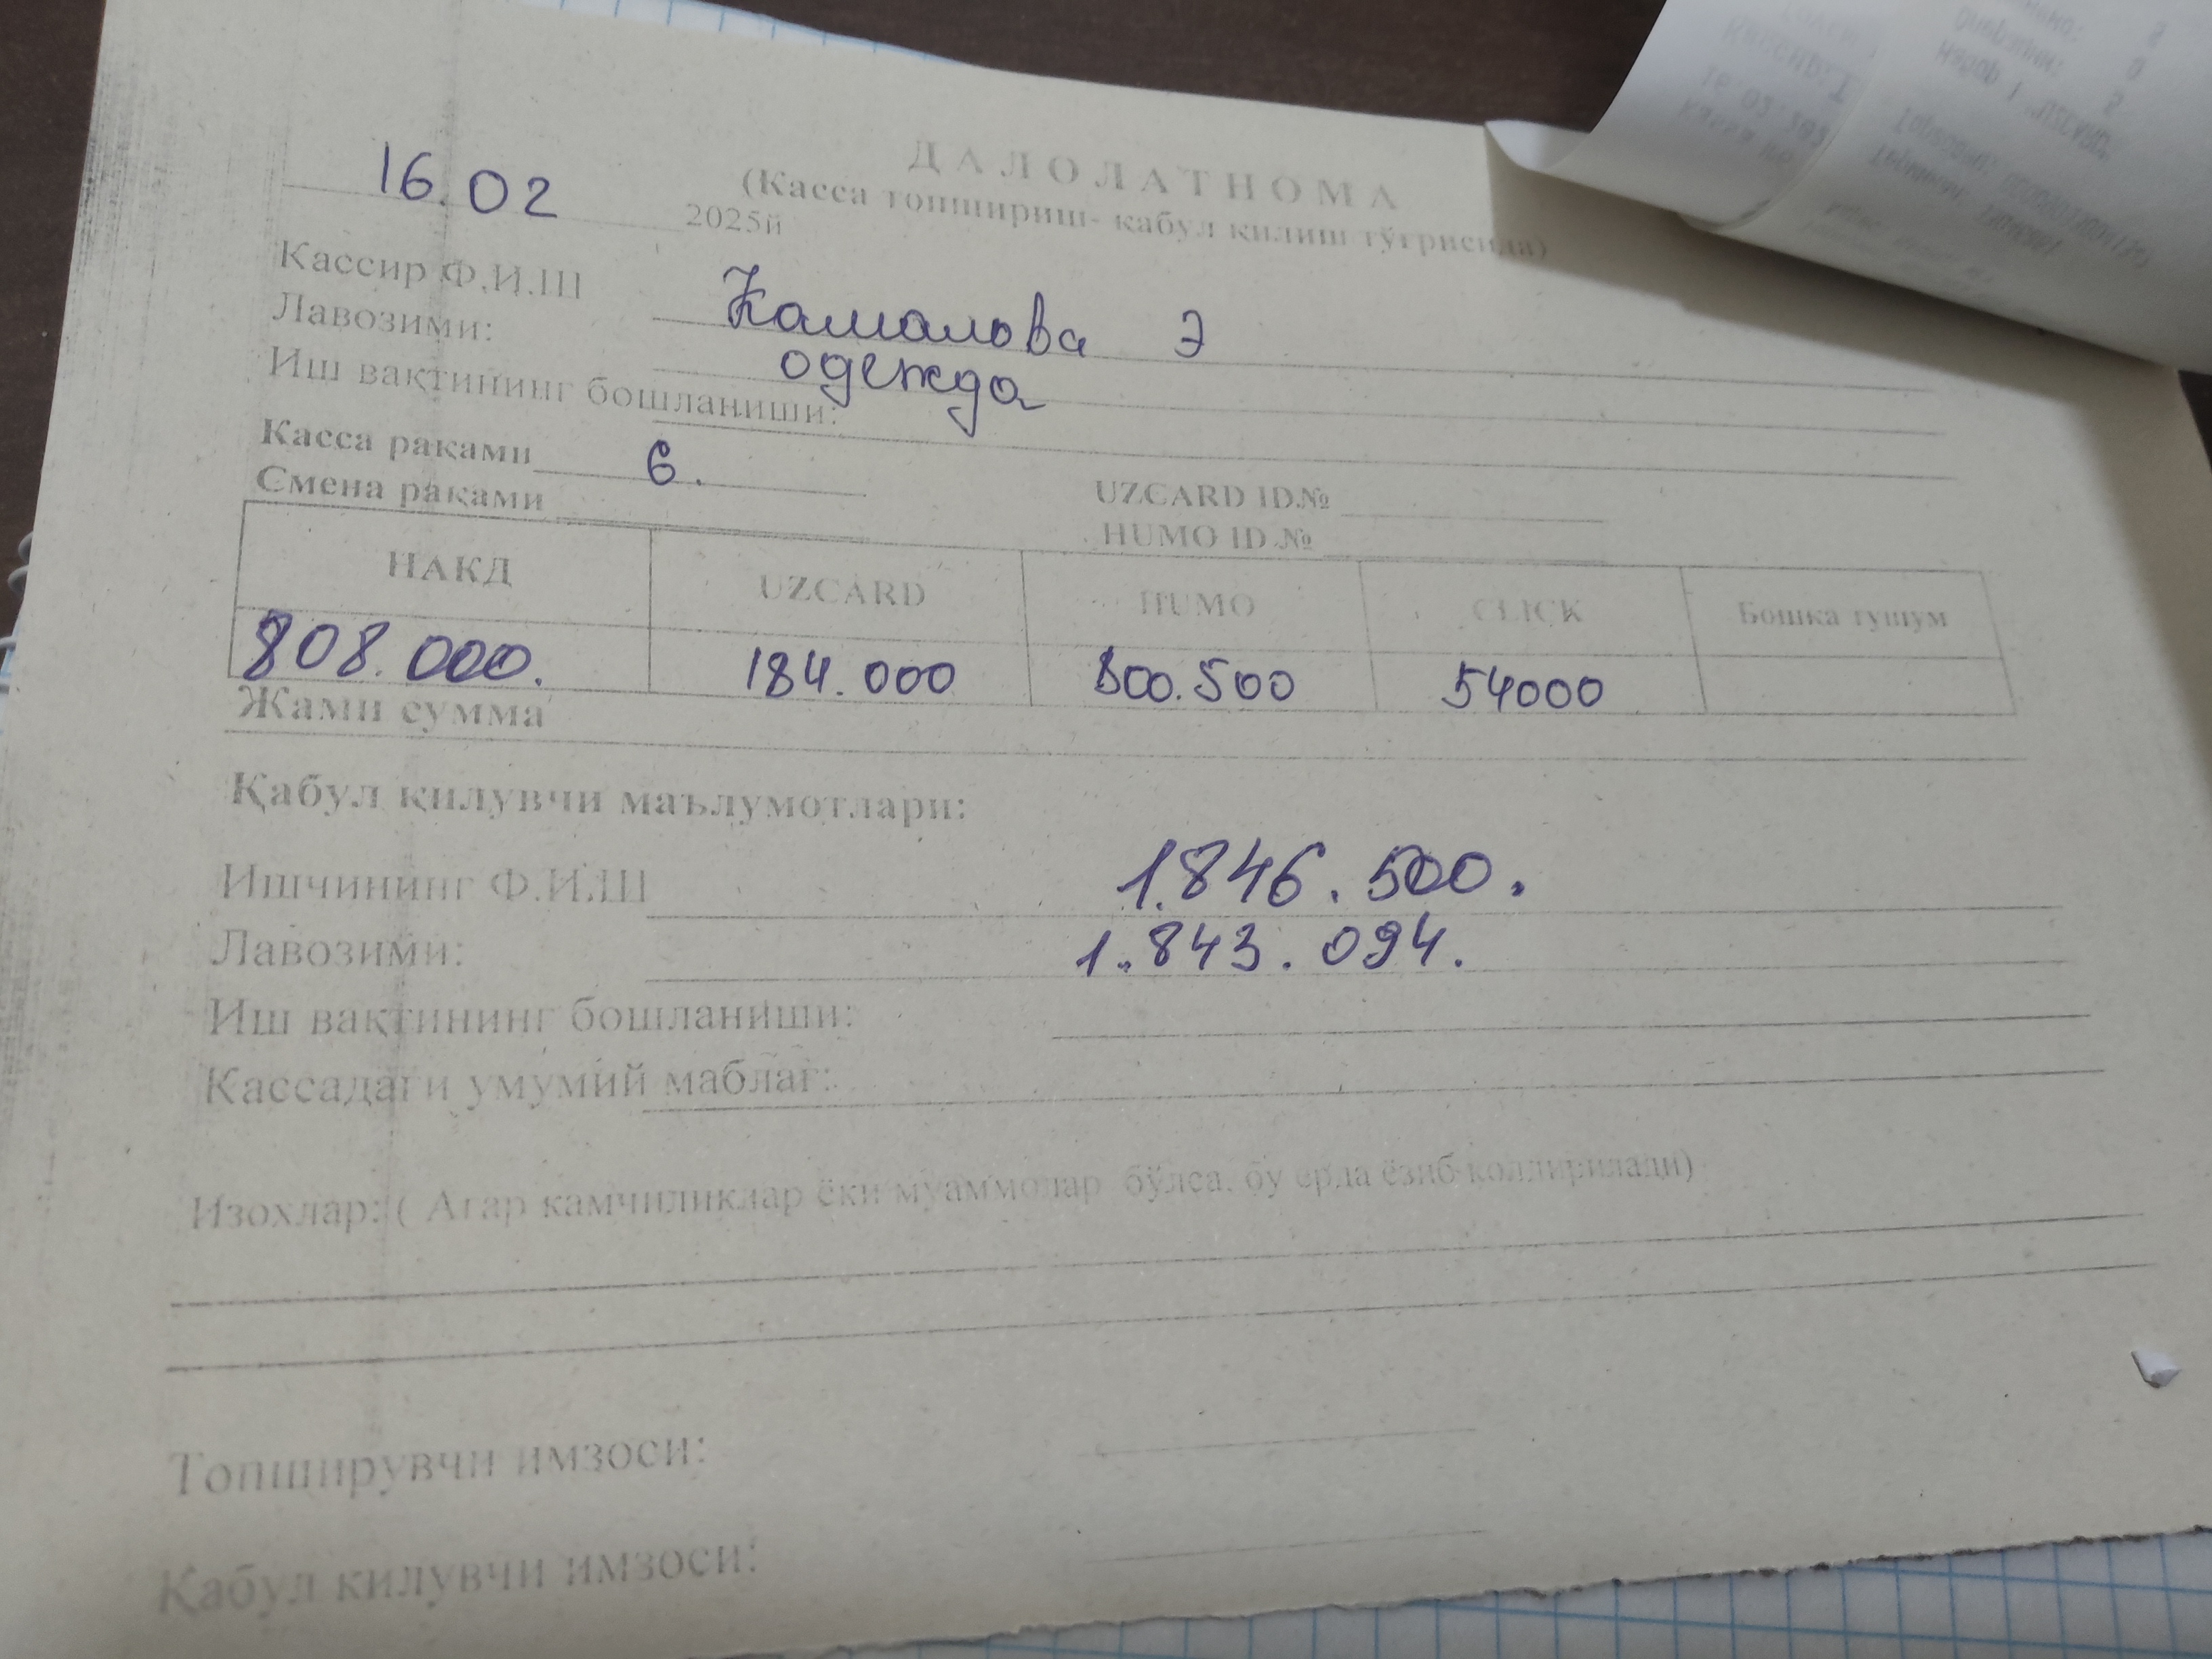 ДАЛОЛАТНОМА
(Касса топшириш- қабул қилиш тўғрисида)
16.02 2025й
Кассир Ф.И.Ш Камалова Э
Лавозими: одежда
Иш вақтининг бошланиши:
Касса рақами 6.
Смена рақами
UZCARD ID.№
HUMO ID.№
НАКД UZCARD HUMO CLICK Бошка тушум
808.000. 184.000 800.500 54000
Жами сумма
Қабул қилувчи маълумотлари:
1.846.500.
Ишчининг Ф.И.Ш
1.843.094.
Лавозими:
Иш вақтининг бошланиши:
Кассадаги умумий маблағ:
Изохлар: ( Агар камчиликлар ёки муаммолар бўлса, бу ерда ёзиб қолдирилади)
Топширувчи имзоси:
Қабул килувчи имзоси: